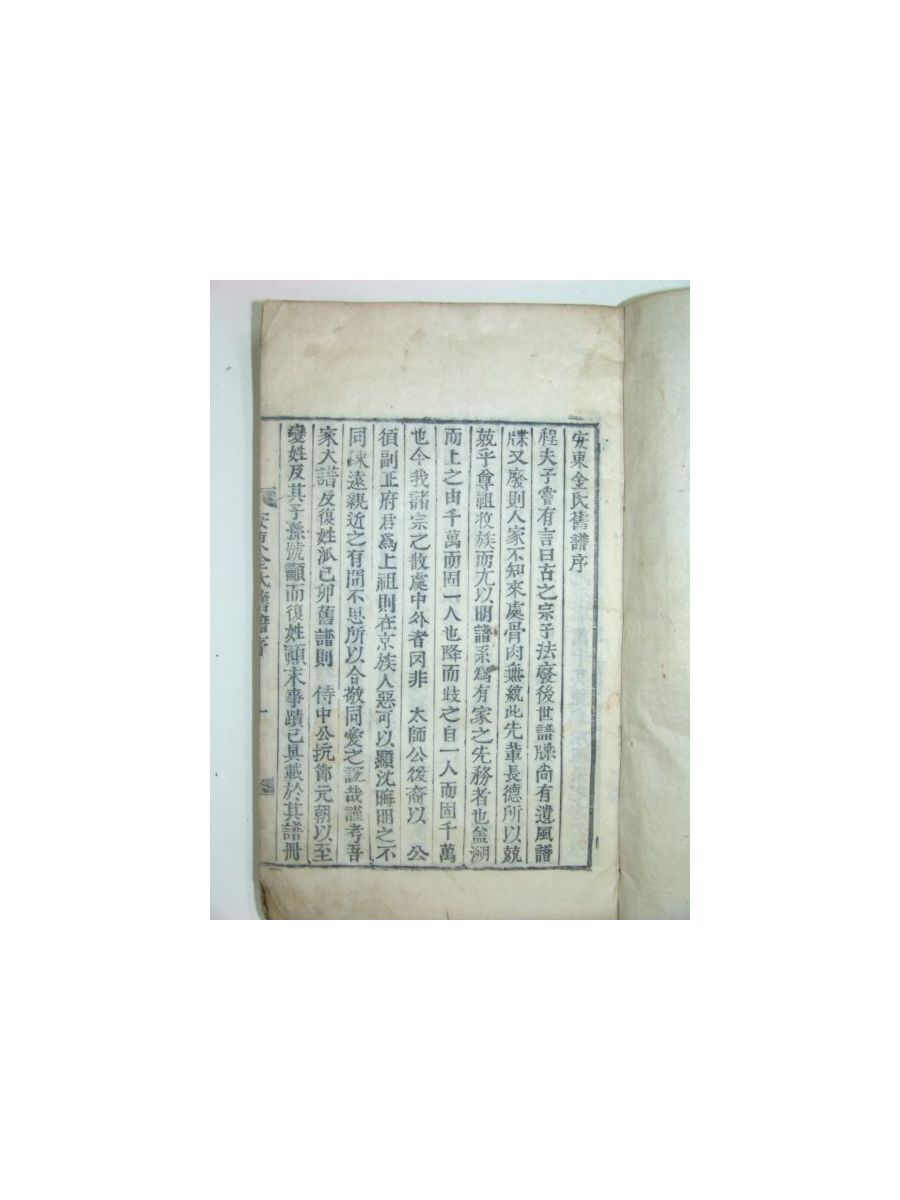 安東金氏舊譜序
程夫子嘗有言曰古之宗子法廢後世譜牒尙有遺風譜
牒又廢則人家不知來處骨肉無統此先輩長德所以兢
兢乎尊祖收族而尤以明譜系爲有家之先務者也盖溯
而上之由千萬而固一人也降而歧之自一人而固千萬
也今我諸宗之散處中外者罔非 太師公後裔以 公
須副正府君爲上祖則在京族人惡可以顯沈晦明之不
同踈遠親近之有間不思所以合敬同愛之誼哉謹考吾
家大譜及復姓派己卯舊譜則 侍中公抗節元朝以至
變姓及其子孫號籲而復姓顚末事蹟已具載於其譜冊
安東金氏舊譜序 一